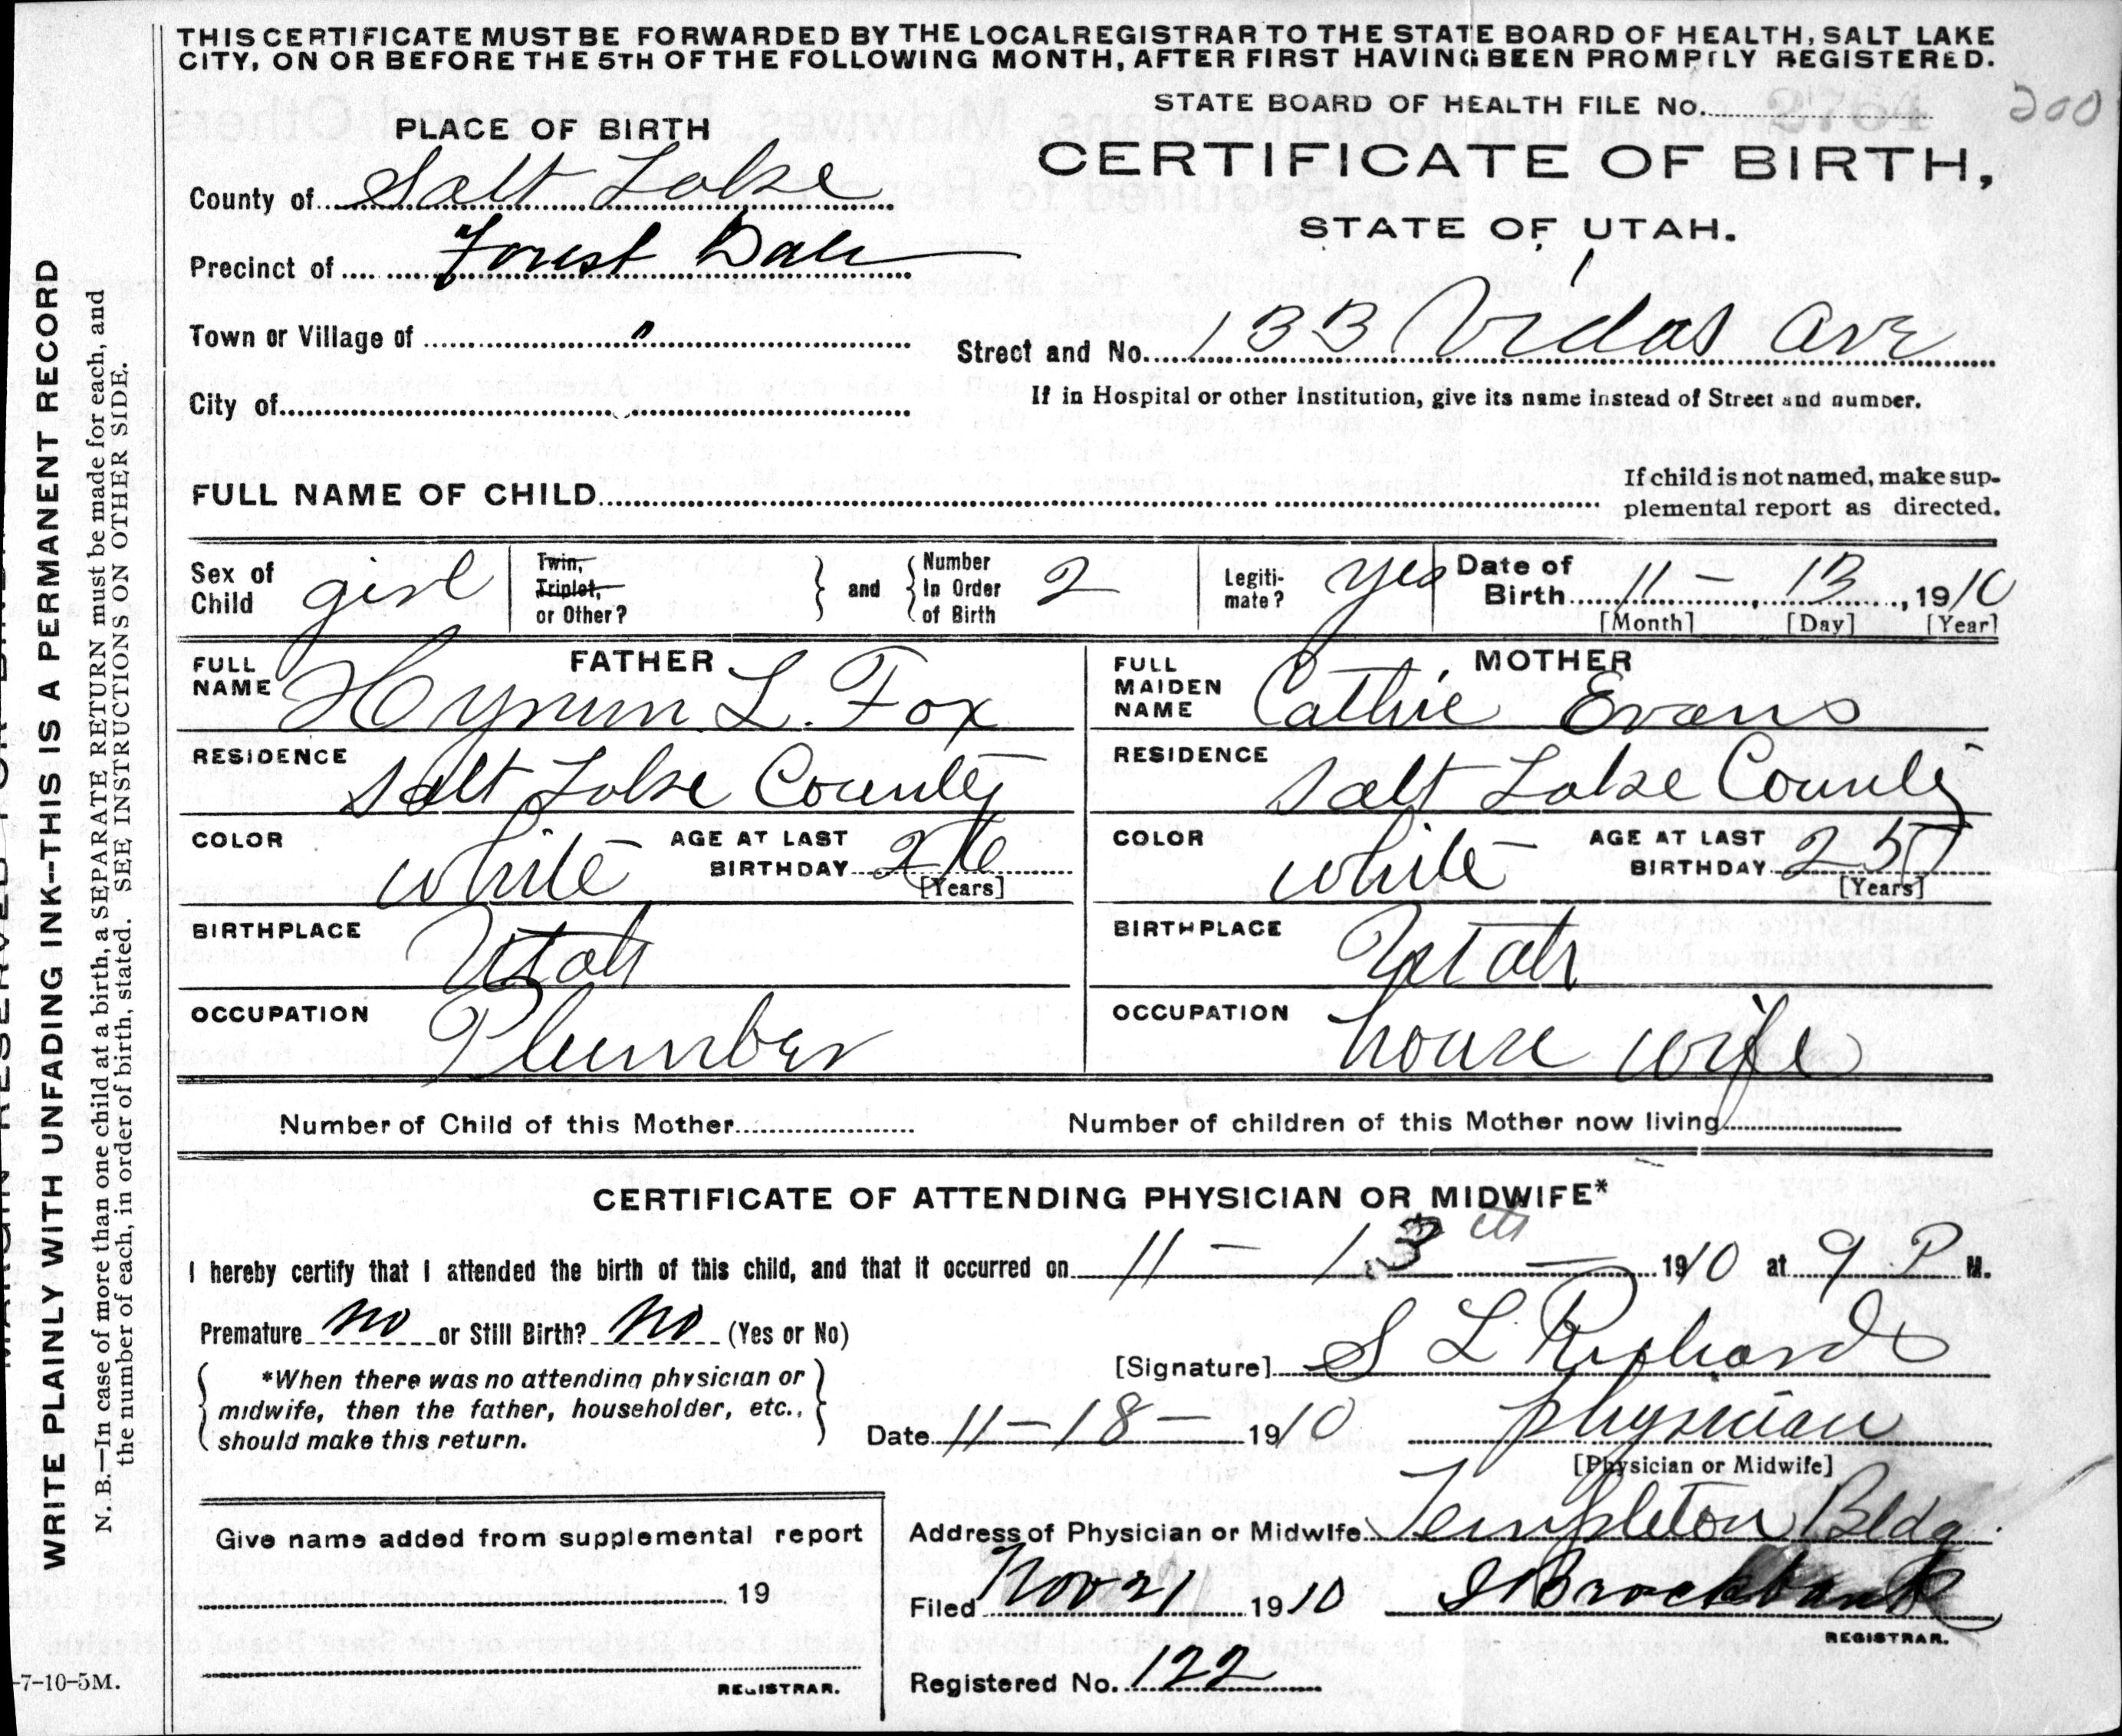 THIS CERTIFICATE MUST BE FORWARDED BY THE LOCAL REGISTRAR TO THE STATE BOARD OF HEALTH, SALT LAKE
CITY, ON OR BEFORE THE 5TH OF THE FOLLOWING MONTH, AFTER FIRST HAVING BEEN PROMPTLY REGISTERED.
STATE BOARD OF HEALTH FILE No.
200
PLACE OF BIRTH
CERTIFICATE OF BIRTH,
STATE OF UTAH.
County of Salt Lake
Precinct of Forest Dale
Town or Village of "
Street and No. 133 Vidas Ave
City of
If in Hospital or other Institution, give its name instead of Street and number.
FULL NAME OF CHILD
If child is not named, make sup-
plemental report as directed.
Sex of Child girl
Twin, Triplet, or Other?
and
Number In Order of Birth 2
Legiti-mate? yes
Date of Birth 11 - 13, 1910
[Month] [Day] [Year]
FATHER
FULL NAME Hyrum L. Fox
RESIDENCE Salt Lake County
COLOR white AGE AT LAST BIRTHDAY 26 [Years]
BIRTHPLACE Utah
OCCUPATION Plumber
MOTHER
FULL MAIDEN NAME Cathie Evans
RESIDENCE Salt Lake County
COLOR white AGE AT LAST BIRTHDAY 25 [Years]
BIRTHPLACE Utah
OCCUPATION house wife
Number of Child of this Mother
Number of children of this Mother now living
CERTIFICATE OF ATTENDING PHYSICIAN OR MIDWIFE*
I hereby certify that I attended the birth of this child, and that it occurred on 11 - 13 th 1910 at 9 P M.
Premature no or Still Birth? no (Yes or No)
*When there was no attending physician or
midwife, then the father, householder, etc.,
should make this return.
[Signature] S L Richards
Date 11-18- 1910
physician
[Physician or Midwife]
Give name added from supplemental report
19
REGISTRAR.
Address of Physician or Midwife Templeton Bldg.
Filed Nov 21 1910 Brockbank
REGISTRAR.
Registered No. 122
WRITE PLAINLY WITH UNFADING INK—THIS IS A PERMANENT RECORD
N. B.—In case of more than one child at a birth, a SEPARATE RETURN must be made for each, and
the number of each, in order of birth, stated. SEE INSTRUCTIONS ON OTHER SIDE.
-7-10-5M.